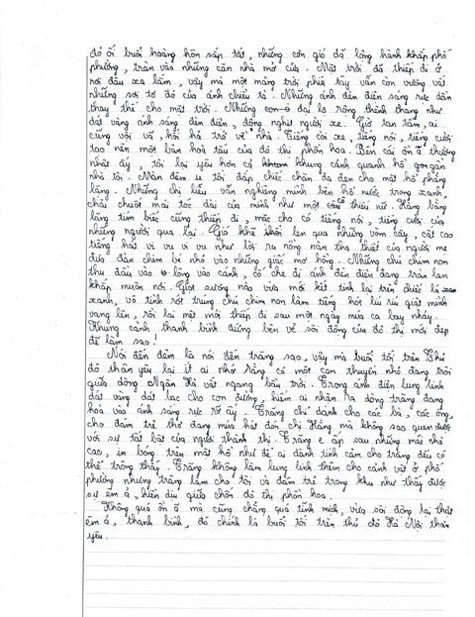 đỏ ối buổi hoàng hôn sắp tắt, những cơn gió đã lồng hành khắp phố
phường, tràn vào những căn nhà mở cửa. Mặt trời đã thiếp đi ở
nơi đâu xa lắm, vậy mà một mảng trời phía tây vẫn còn vương vất
những sợi tơ đỏ của ánh chiều tà. Những ánh đèn điện sáng rực dần
thay thế cho mặt trời. Những con đại lộ rộng thênh thang như
dát vàng ánh sáng đèn điện, đông nghịt người xe. Giờ tan tầm, ai
cũng vội vã, hối hả trở về nhà. Tiếng còi xe, tiếng nói, tiếng cười
tạo nên một bản hoà tấu của đô thị phồn hoa. Bên cái ồn ã thường
nhật ấy, tôi lại yêu hơn cả khung cảnh quanh hồ gần
nhà tôi. Màn đêm u tối đắp chiếc chăn dạ đen cho mặt hồ phẳng
lặng. Những chị liễu vẫn nghiêng mình bên hồ nước trong xanh,
chải chuốt mái tóc dài của mình như một thiếu nữ. Hàng bằng
lăng tím biếc cũng thiếp đi, mặc cho có tiếng nói, tiếng cười của
những người qua lại. Gió khẽ khơi lên qua những vòm cây, cất cao
tiếng hát vi vu vi vu như lời ru nồng nàn tha thiết của người mẹ
đưa đàn chim bé nhỏ vào những giấc mơ hồng. Những chú chim non
thu đầu vào lông vào cánh, để che đi ánh đèn điện đang tràn lan
khắp muôn nơi. Giọt sương nào vừa mới kết tinh lại trên phiến lá
xanh, vô tình rớt trúng chú chim non làm tiếng hót líu ríu giật mình
vang lên, rồi lại mệt mỏi thiếp đi sau một ngày múa ca bay nhảy.
Khung cảnh thanh bình đứng bên vẻ sôi động của đô thị mới đẹp
đẽ làm sao!
Nói đến đêm là nói đến trăng sao, vậy mà buổi tối trên thủ
đô thân yêu lại ít ai nhớ rằng có một con thuyền nhỏ đang trôi
giữa dòng Ngân Hà vắt ngang bầu trời. Trong ánh điện lung linh
dát vàng dát bạc cho con đường, hiếm ai nhận ra dòng trăng đang
hoà vào ánh sáng rực rỡ ấy. Trăng chỉ dành cho các bà, các ông,
cho đám trẻ thơ đang múa hát đón chị Hằng mà không sao quen được
với sự tất bật của người thành thị. Trăng e ấp sau những mái nhà
cao, in bóng trên mặt hồ như để ai dành tình cảm cho trăng đều có
thể trông thấy. Trăng không làm lung linh thêm cho cảnh vật ở phố
phường nhưng trăng làm cho tôi và đám trẻ trong khu như thấy được
sự êm ả, hiền dịu giữa chốn đô thị phồn hoa.
Không quá ồn ã mà cũng chẳng quá tĩnh mịch, vừa sôi động lại thật
êm ả, thanh bình, đó chính là buổi tối trên thủ đô Hà Nội thân
yêu.